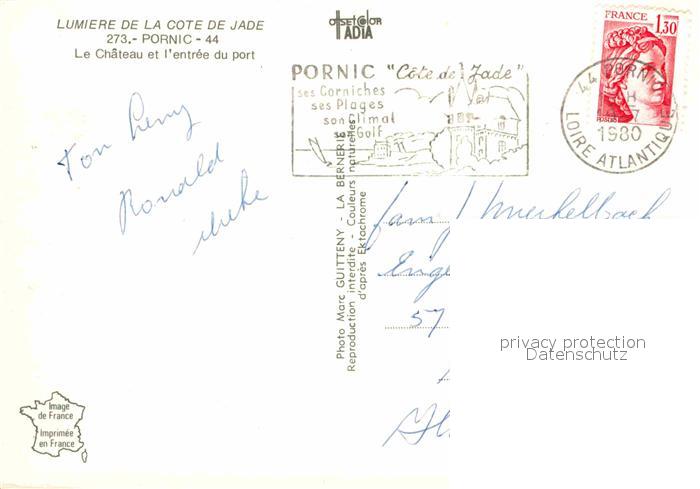 LUMIERE DE LA COTE DE JADE
273.- PORNIC - 44
Le Château et l'entrée du port
OFFSET COLOR
IADIA
FRANCE
1,30
PORNIC "Côte de Jade"
ses Corniches
ses Plages
son Climat
son Golf
44 PORNIC
1980
LOIRE ATLANTIQUE
Ton Leny
Ronald
fam
Enge
57
Photo Marc GUITTENY - LA BERNERIE
Reproduction interdite - Couleurs naturelles
d'après Ektachrome
privacy protection
Datenschutz
Image
de France
Imprimée
en France